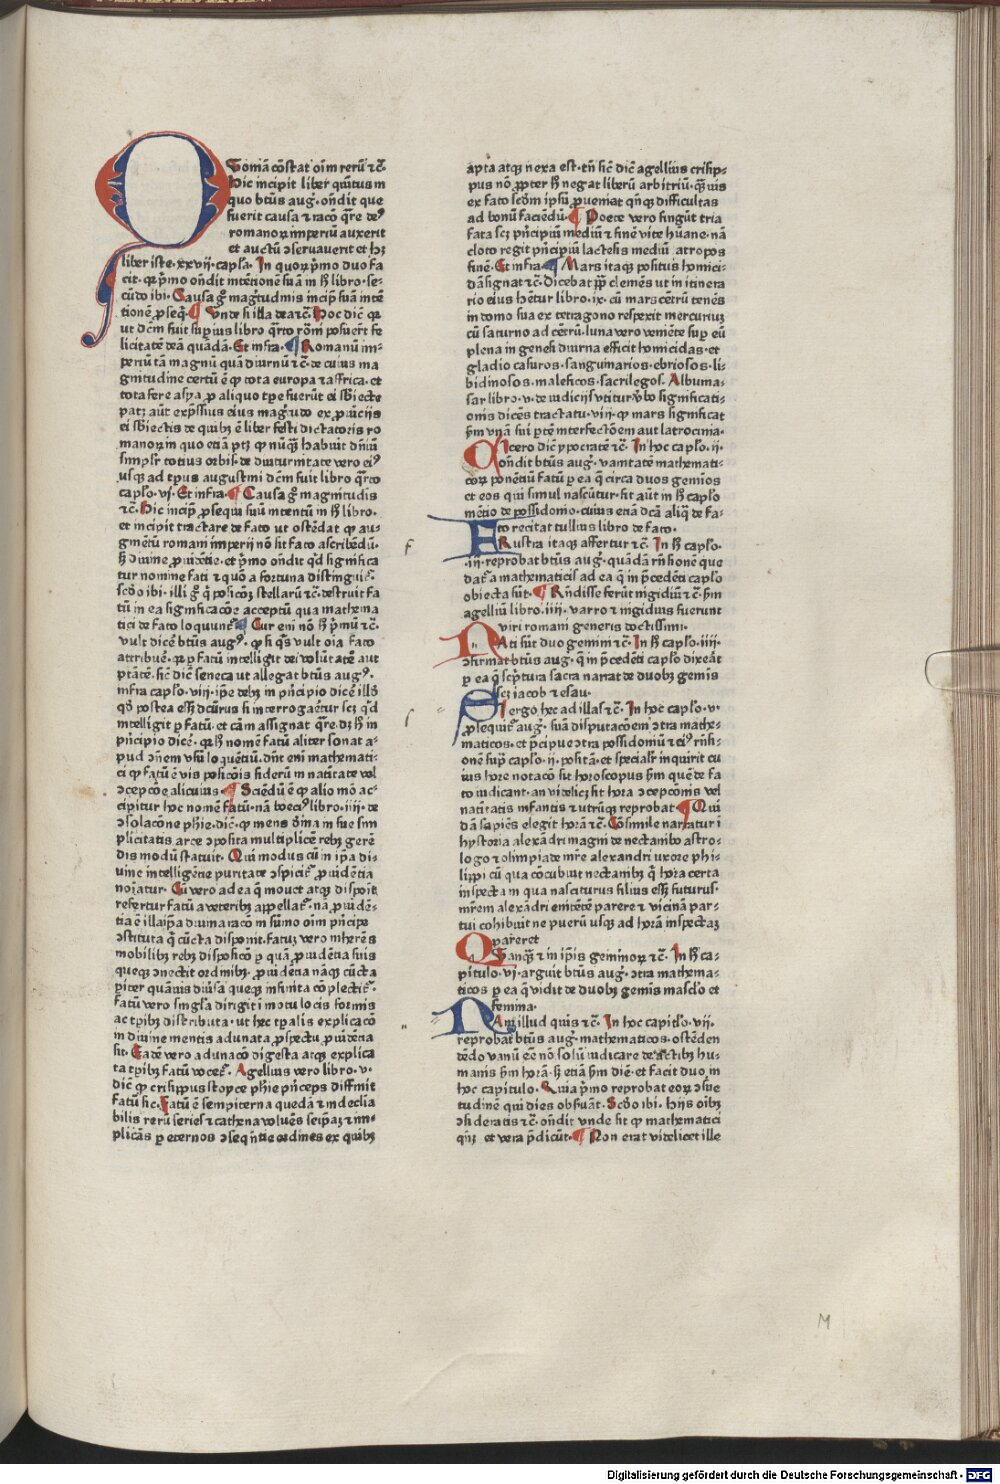 Qoniā cōstat oīm rerū ⁊c̄
Hic incipit liber quītus in
quo btūs aug⁹. oñdit que
fuerit causa ⁊ racō q̄re de⁹
romanoꝝ imperiū auxerit
et auctū ↄseruauerit et hꝫ
liber iste. xxvij. capl̄a. In quoꝝ p̄mo duo fa
cit. qꝛ p̄mo oñdit intētionē suā in h̄ libro. se-
cūdo ibi. Causa gͦ magi̅tudinis incip̄ suā intē
tionē ꝓseq̄. Unde si illa dea ⁊c̄. Hoc dic̄ qꝛ
ut dc̄m fuit supius libro q̄rto rōm̄ posuerūt fe
licitatē deā quādā. Et infra. Romanū im-
periū tā magnū quā diurnū ⁊c̄. de cuius ma
gnitudine certū ē ꝙ tota europa ⁊ affrica. et
tota fere asya ꝑ aliquo tꝑe fuerūt ei sbiecte
patꝫ aūt exp̄ssius eius magi̅udo ex ꝓuīcijs
ei sbiectis de quibꝫ ē liber festi dictatoris ro
manoꝝ in quo etiā ptꝫ ꝙ nūq̄ habuit dn̄iū
simplr̄ totius orbis. de diuturnitate vero ei⁹
usqꝫ ad tp̄us augustini dc̄m fuit libro q̄rto
caplo. vj. Et infra. Causa gͦ magnitudis
⁊c̄. Hic incip̄ ꝓsequi suū intentū in h̄ libro.
et incipit tractare de fato ut ostēdat ꝙ au-
gmētū romani imperij nō sit fato ascribēdū.
sꝫ diuine ꝓuidētie. et p̄mo oñdit qd̄ significa
tur nomine fati ⁊ quō a fortuna distinguit̄.
scd̄o ibi. illi gͦ q̄ posicōꝫ stellarū ⁊c̄. destruit fa
tū in ea significacōe acceptū qua mathema
tici de fato loquunt̄. Cur eni nō h̄ p̄mū ⁊c̄.
vult dicē btūs aug⁹. ꝙ si q̄s vult oīa fato
attribuē. qꝛ ꝑ fatū intelligit dei volūtatē aut
ptātē. sic̄ dic̄ seneca ut allegat btūs aug⁹.
infra caplo. viij. ip̄e debꝫ in p̄ncipio dicē illd̄
qd̄ postea ess̄ dc̄urus si interrogaet̄ur scꝫ qd̄
intelligit ꝑ fatū. et cām assignat q̄re. dꝫ h̄ in
p̄ncipio dicē. qꝛ h̄ nomē fatū aliter sonat a-
pud ↄn̄em vsū loquētiū. dn̄t eni mathemati-
ci ꝙ fatū ē vis posicōis siderū in natītate vel
ↄcepcōe alicuius. Sciēdū ē ꝙ alio mō ac-
cipitur hoc nomē fatū. nā boeci⁹ libro. iiij. de
ↄsolacōne phīe. dic̄. ꝙ mens diīna in sue sim
plicitatis arce ↄposita multiplicē rebꝫ gerē
dis modū statuit. Qui modus cū in ip̄a di-
uine intelligētie puritate ↄspicit̄ ꝓuidētia
noīatur. Cū vero ad ea q̄ mouet atqꝫ disponit
refertur fatū a veteribꝫ appellat̄. nā ꝓuidē-
tia ē illa ip̄a diuina racō in sūmo oīm p̄ncipe
ↄstituta q̄ cūcta disponit. fatuꝫ vero inherēs
mobilibꝫ rebꝫ disposicō ꝑ quā ꝓuidētia suis
queqꝫ ↄnectit ordinibꝫ. ꝓuidētia nāqꝫ cūcta
ꝑiter quāuis diūsa queqꝫ infinita cōplectit̄.
fatū vero singl̄a dirigit ī motu locis formis
ac tꝑibꝫ distributa. ut hec tꝑalis explicacō
in diuine mentis adunata ꝓspectu ꝓuidētia
sit. Eadē vero adunacō digesta atqꝫ explica
ta tꝑibꝫ fatū vocet̄. Agellius vero libro. v.
dic̄ ꝙ crisippus stoyce phīe p̄nceps diffinit
fatū sic. Fatū ē sempiterna quedā ⁊ indeclia
bilis rerū series ⁊ cathena voluēs seip̄aꝫ ⁊ im-
plicās ꝑ eternos ↄseq̄ntie ordines ex quibꝫ
apta atqꝫ nexa est. tn̄ sic̄ dic̄ agellius crisip-
pus nō ꝓpter h̄ negat liberū arbitriū. q̄uis
ex fato scd̄m ip̄sū ꝓueniat qn̄qꝫ difficultas
ad bonū faciēdū. Poete vero fingūt tria
fata scꝫ p̄ncipiū mediū ⁊ finē vite hūane. nā
cloto regit p̄ncipiū lachesis mediū atropos
finē. Et infra. Mars itaqꝫ positus homici-
dā signat ⁊c̄. Dicebat pp̄ clemēs ut in itinera
rio eius hētur libro. ix. cū mars cētrū tenēs
in domo sua ex tetragono respexit mercuriuꝫ
cū saturno ad cētrū. luna vero veniēte sup̄ eū
plena in genesi diurna efficit homicidas. et
gladio casuros. sanguinarios. ebriosos. li-
bidinosos. maleficos. sacrilegos. Albuma-
sar libro. v. de iudicijs vtitur v̄bo significati-
onis dicēs tractatu. viij. ꝙ mars significat
scd̄m vnā sui ptē interfectōem aut latrocinia.
Cicero dic̄ ypocratē ⁊c̄. In hoc caplo. ij.
oñdit btūs aug⁹. vanitatē mathemati-
coꝝ ponētiū fatū ꝑ ea q̄ circa duos geminos
et eos qui simul nascūtur. fit aūt in h̄ caplo
mētio de possidonio. cuius etiā dc̄a aliq̄ de fa-
to recitat tullius libro de fato.
Frustra itaqꝫ affertur ⁊c̄. In h̄ caplo.
.iij. reprobat btūs aug⁹. quādā rn̄sionē que
dat̄ a mathematicis ad ea q̄ in p̄cedēti caplo
obiecta sūt. Rn̄disse ferūt nigidiū ⁊c̄. scd̄m
agelliū libro. iiij. varro ⁊ nigidius fuerunt
viri romani generis doctissimi.
Nati sūt duo gemini ⁊c̄. In h̄ caplo. iiij.
ↄfirmat btūs aug⁹. q̄ in p̄cedēti caplo dixeāt
ꝑ ea q̄ sc̄ptura sacra narrat de duobꝫ geminis
scꝫ iacob ⁊ esau.
Si ergo hec ad illas ⁊c̄. In hoc caplo. v.
ꝓsequit̄ aug⁹. suā disputacōem ↄtra mathe-
maticos. et p̄cipue ↄtra possidoniū ⁊ ei⁹ rn̄si-
onē sup̄ caplo. ij. positā. et specialr̄ inquirit cu
ius hore notacō sit horoscopus scd̄m quē de fa
to iudicant. an videlicꝫ sit hora ↄcepcōnis vel
natītatis infantis ⁊ utrūqꝫ reprobat. Qui
dā sapiēs elegit horā ⁊c̄. Cōsimile narratur ī
hystoria alexādri magni de nectanabo astro-
logo ⁊ olimpiade mr̄e alexandri uxore phi-
lippi cū qua cōcubuit nectanabꝫ q̄ hora certa
inspecta in qua nasciturus filius ess̄ futurus.
mr̄em alexādri enitētē parere ⁊ vicinā par-
tui cohibuit ne puerū usqꝫ ad horā inspectaꝫ
pareret
Qanq̄ ⁊ in ip̄is geminoꝝ ⁊c̄. In h̄ ca-
pitulo. vj. arguit btūs aug⁹. ↄtra mathema-
ticos ꝑ ea q̄ vidit de duobꝫ geminis masclo et
femina.
Nam illud quis ⁊c̄. In hoc capitl̄o. vij.
reprobat btūs aug⁹. mathematicos. ostēden
dēdo vanū eē nō solū iudicare de actibꝫ hu-
manis scd̄m horā. sꝫ etiā scd̄m diē. et facit duo in
hoc capitulo. Quia p̄mo reprobat eoꝝ ↄsue
tudinē qui dies obseruāt. Scd̄o ibi. Hijs oībꝫ
ↄsideratis ⁊c̄. oñdit vnde sit ꝙ mathematici
qn̄qꝫ et vera p̄dicūt. Non erat videlicet ille
M
Digitalisierung gefördert durch die Deutsche Forschungsgemeinschaft - DFG